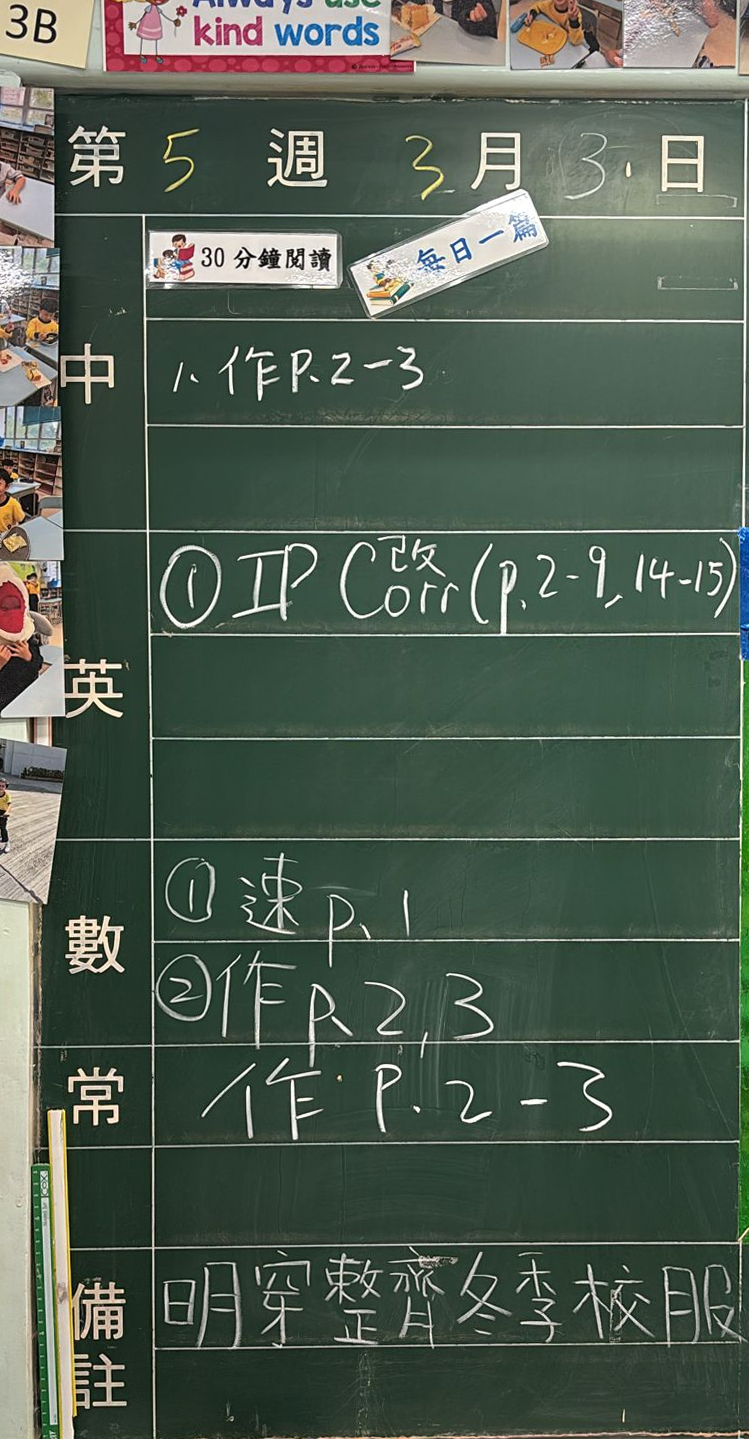 3B
Always use
kind words
第 5 週 3 月 3 日
30分鐘閱讀
每日一篇
中
1. 作P.2-3
英
① IP Corr改 (p.2-9, 14-15)
數
① 速 p.1
② 作 P.2,3
常
作 P.2-3
備註
明穿整齊冬季校服